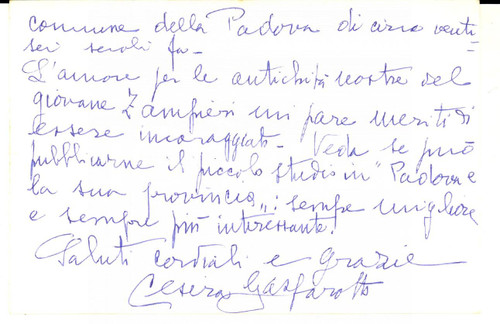 comune della Padova di circa venti=
sei secoli fa -
L'amore per le antichità nostre del
giovane Zampieri mi pare meriti di
essere incoraggiato - Veda se può
pubblicarne il piccolo studio in "Padova e
la sua provincia„: sempre migliore
e sempre più interessante!
Saluti cordiali e grazie
Cesira Gasparotto